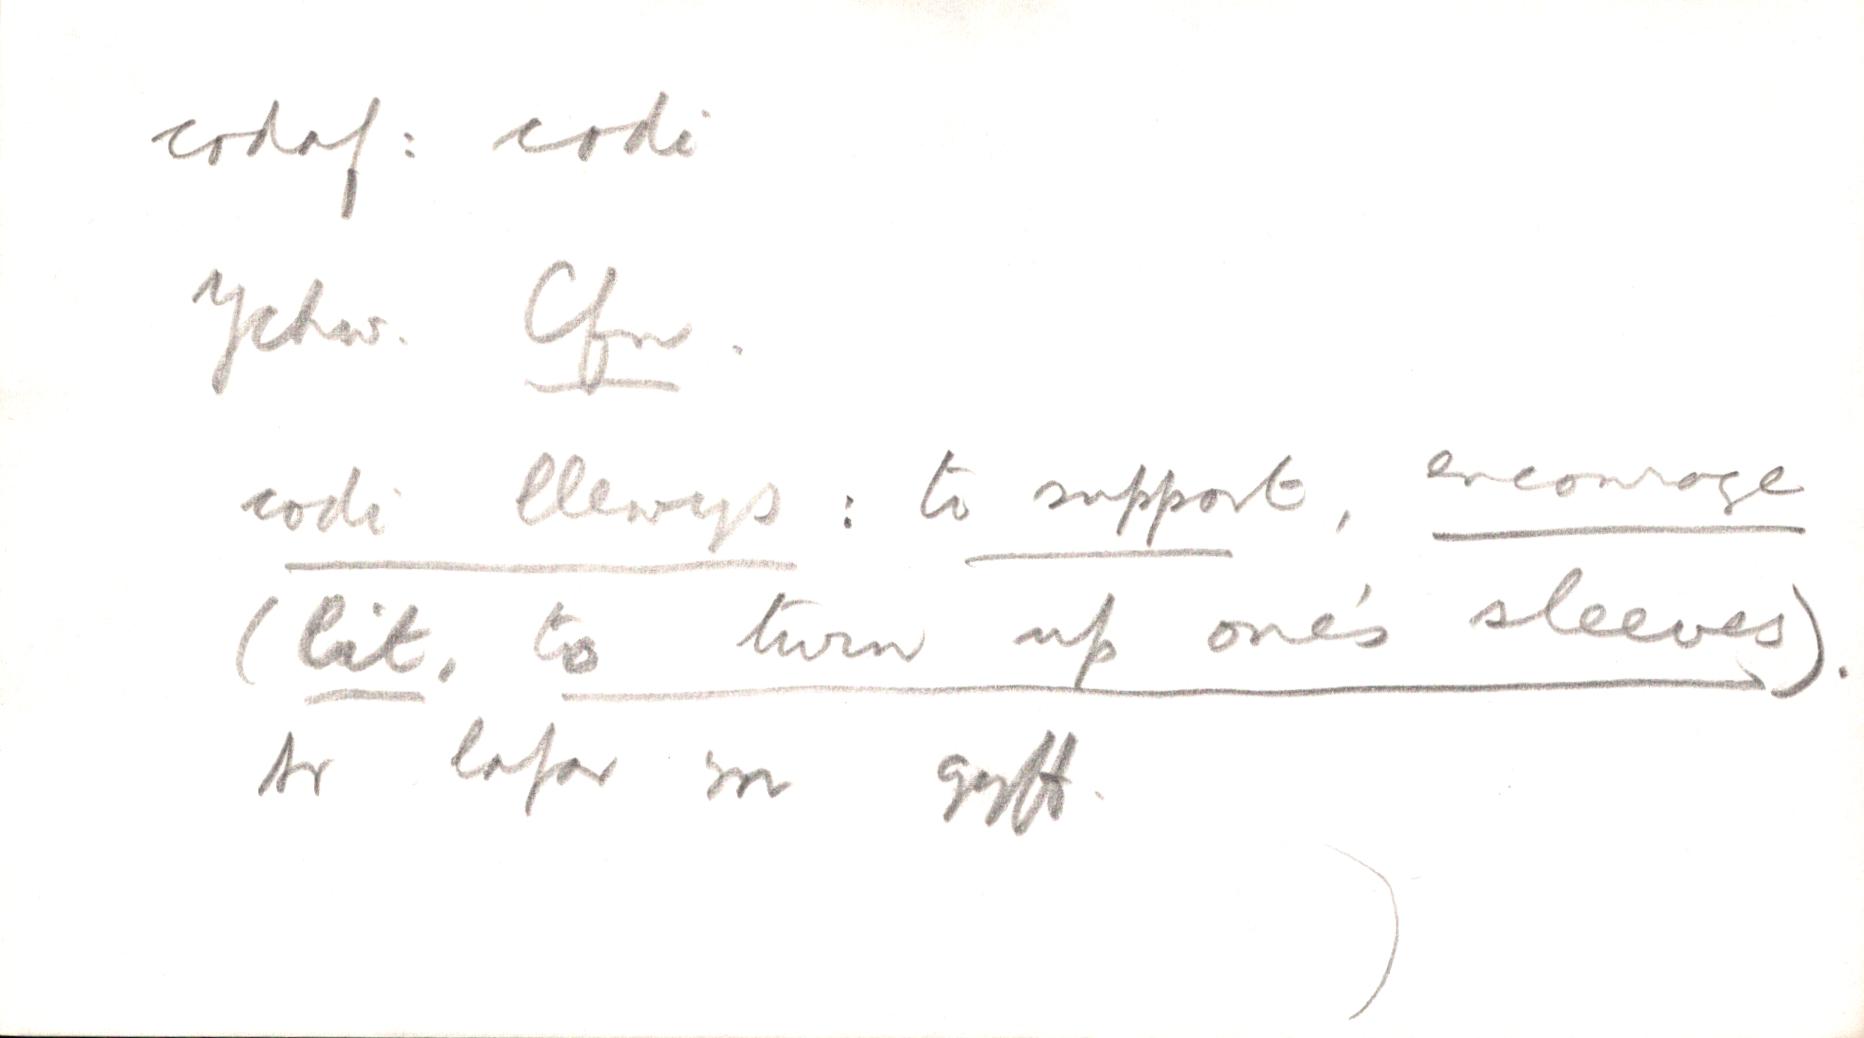 codaf: codi
Ychw. Cfn.
codi llewys: to support, encourage
(lit. to turn up one's sleeves).
Ar lafar yn gyff.